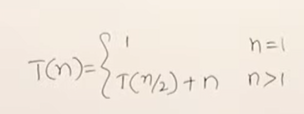 T(n)= { 1 n=1
T(n/2) + n n>1